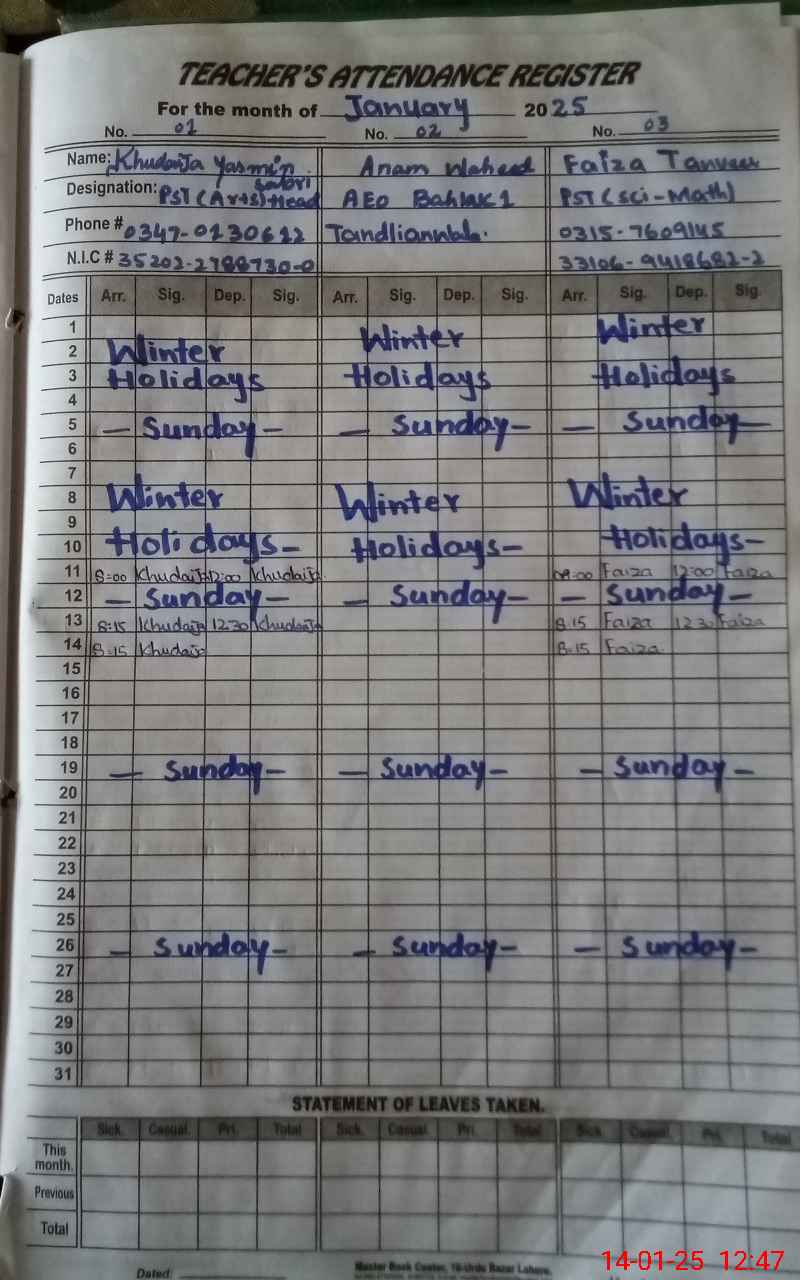 TEACHER'S ATTENDANCE REGISTER
For the month of January 2025
No. 01 No. 02 No. 03
Name: Khudaija Yasmin. Anam Waheed Faiza Tanveer
Designation: PST (Arts) Head AEO Bahlak 1 PST (Sci-Math)
Phone # 0347-0130612 0315-7609145
N.I.C # 35202-2788730-0 33106-9418682-2
Dates Arr. Sig. Dep. Sig. Arr. Sig. Dep. Sig. Arr. Sig. Dep. Sig.
1 Winter Winter
2 Winter
3 Holidays Holidays Holidays
4
5 - Sunday - - Sunday - - Sunday -
6
7
8 Winter Winter Winter
9
10 Holidays - Holidays - Holidays -
11 8:00 Khudaija 12:00 Khudaija 08:00 Faiza 12:00 Faiza
12 - Sunday - - Sunday - - Sunday -
13 8:15 Khudaija 12 30 Khudaija 8 15 Faiza 12 30 Faiza
14 8:15 Khudaija 8:15 Faiza
15
16
17
18
19 - Sunday - - Sunday - - Sunday -
20
21
22
23
24
25
26 - Sunday - - Sunday - - Sunday -
27
28
29
30
31
STATEMENT OF LEAVES TAKEN.
Sick. Casual. Pri. Total Sick. Casual. Pri. Total Sick. Casual. Pri. Total
This
month.
Previous
Total
Dated: Master Book Center, 16-Urdu Bazar Lahore.
14-01-25 12:47